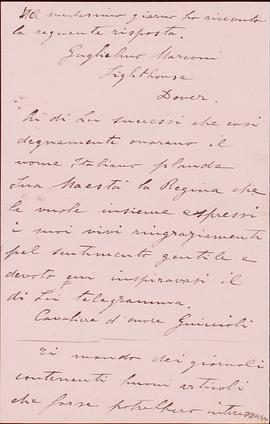 Il medesimo giorno ho ricevuto
la seguente risposta.
Guglielmo Marconi
Lighthouse
Dover.
Ai di Lei successi che così
degnamente onorano il
nome Italiano plaude
Sua Maestà la Regina che
le vuole insieme espressi
i suoi vivi ringraziamenti
pel sentimento gentile e
devoto cui inspiravasi il
di Lei telegramma.
Cavaliere d'onore Guiccioli
Ti mando dei giornali
contenenti buoni articoli
che forse potrebbero